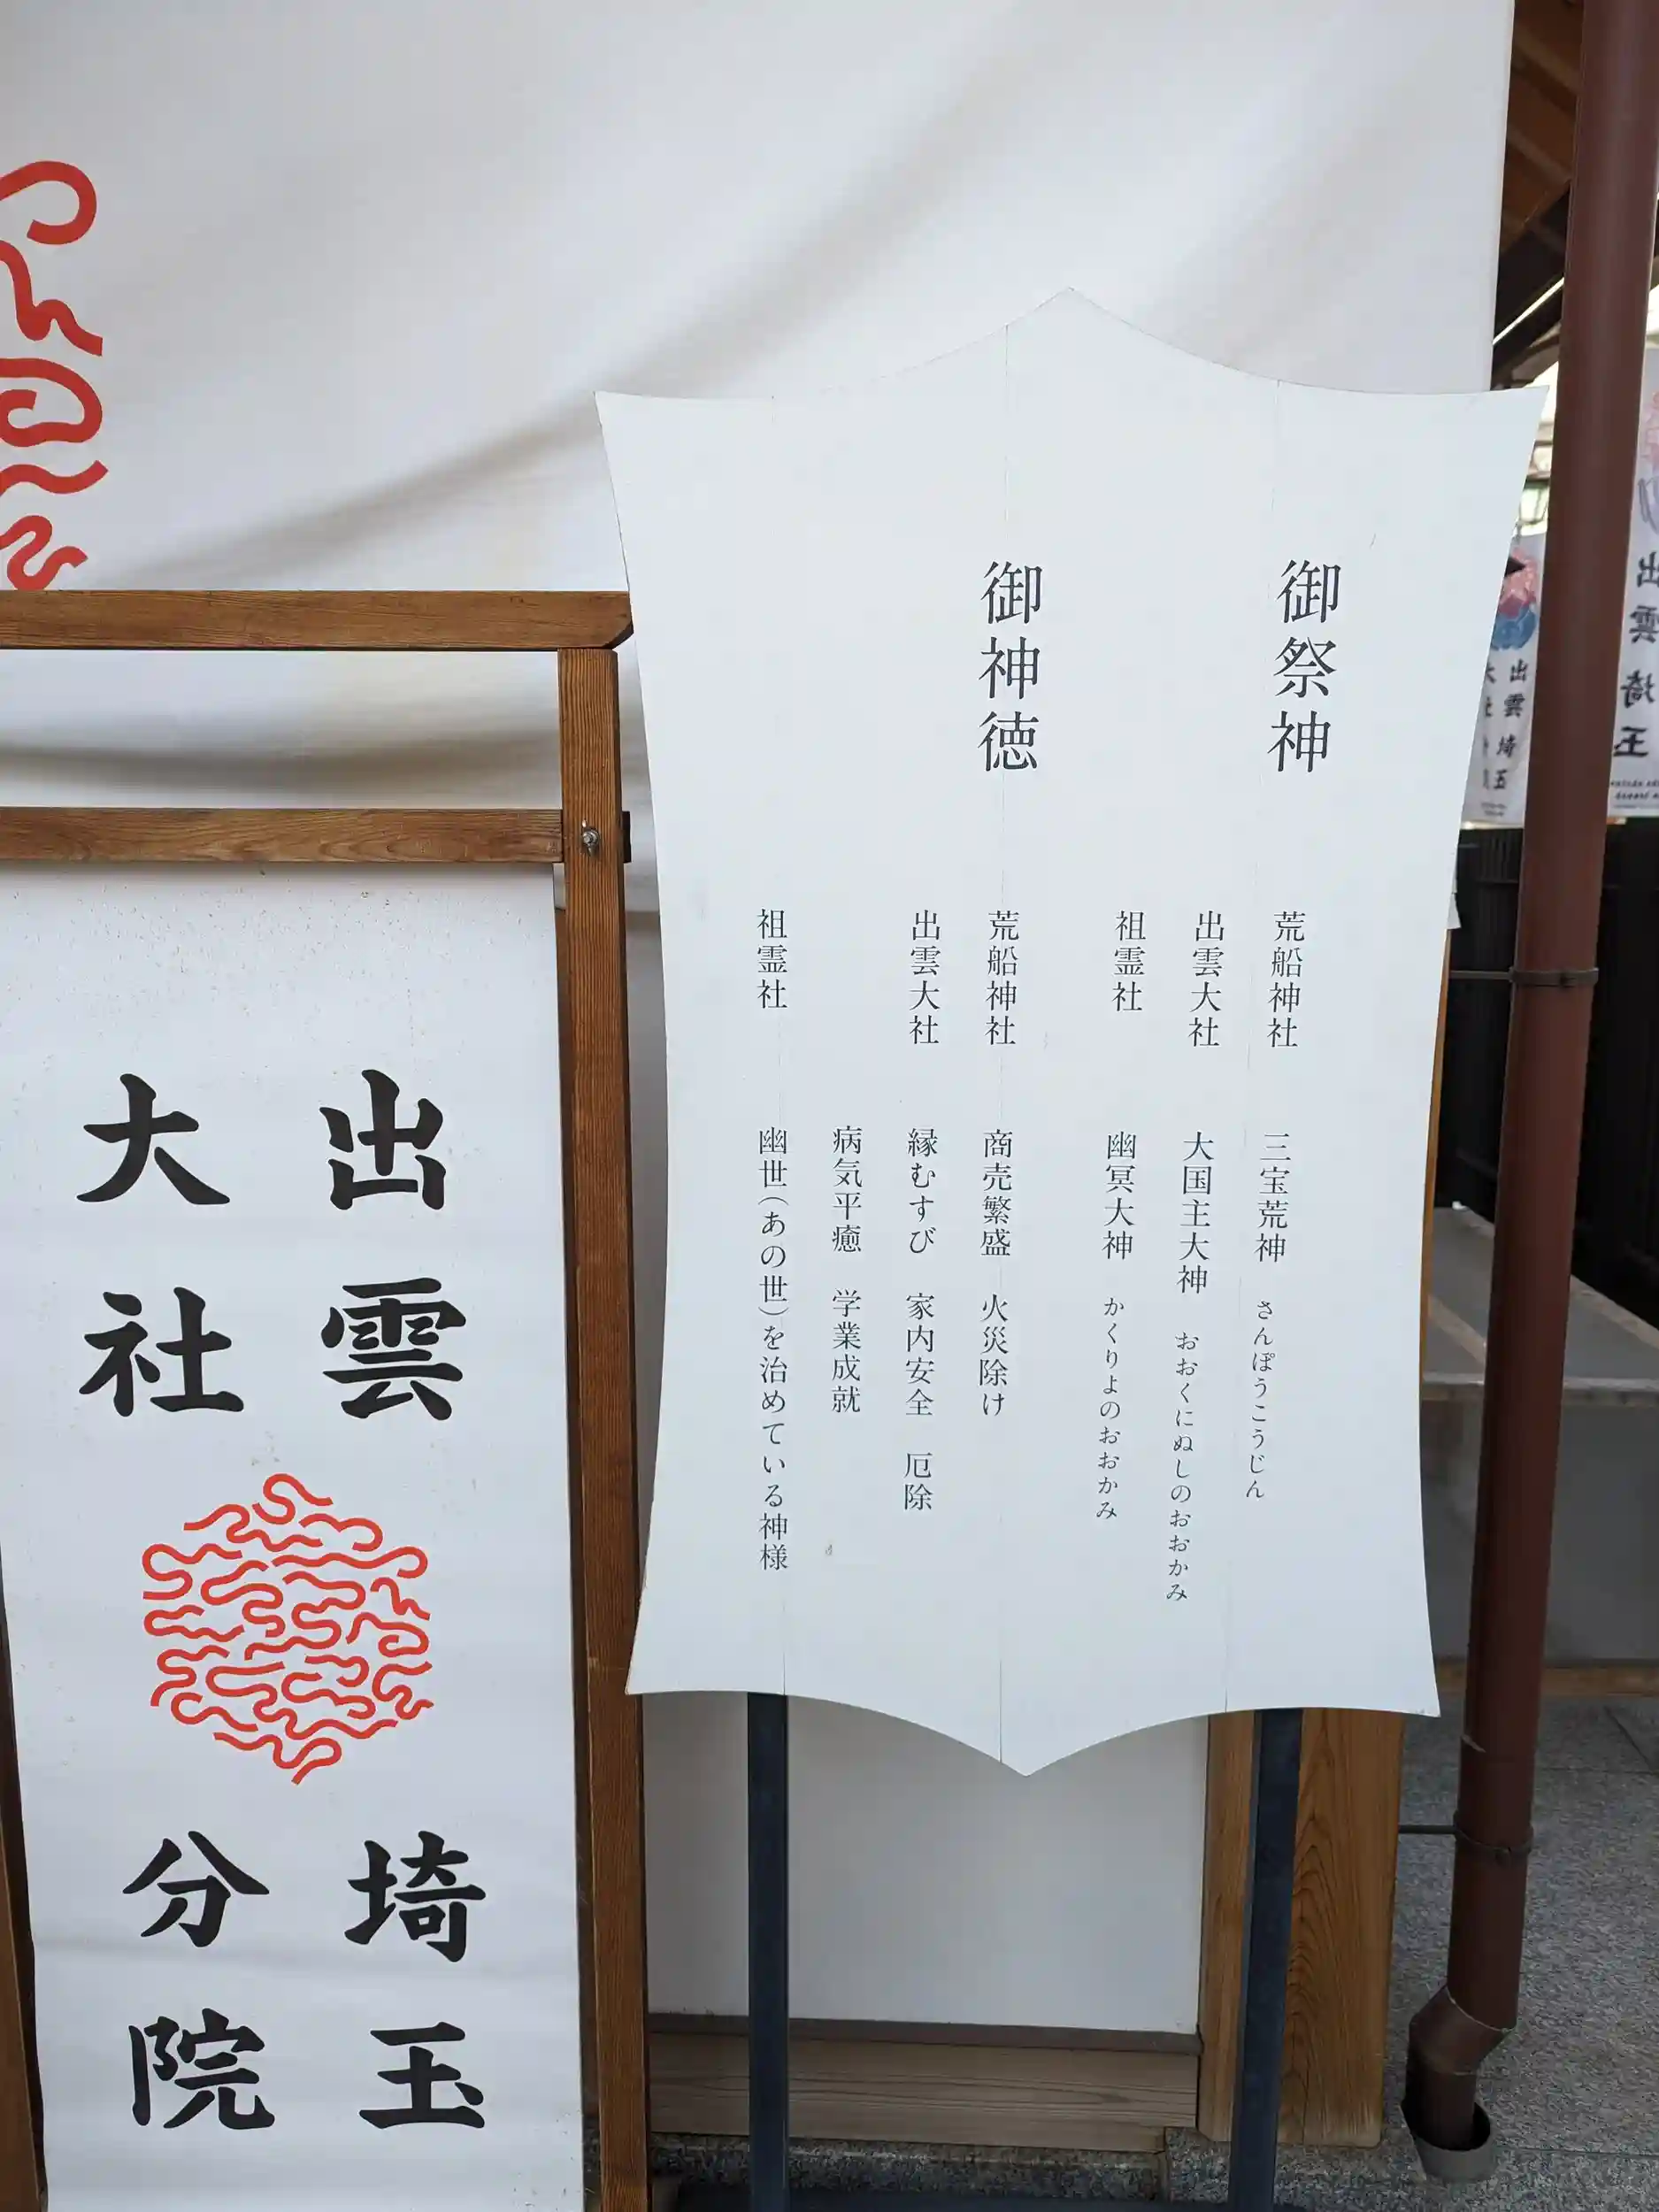 御祭神
荒船神社 三宝荒神 さんぽうこうじん
出雲大社 大国主大神 おおくにぬしのおおかみ
祖霊社 幽冥大神 かくりよのおおかみ
御神徳
荒船神社 商売繁盛 火災除け
出雲大社 縁むすび 家内安全 厄除
病気平癒 学業成就
祖霊社 幽世(あの世)を治めている神様
出雲
大社
埼玉
分院
出雲
埼玉
出雲
大社
埼玉